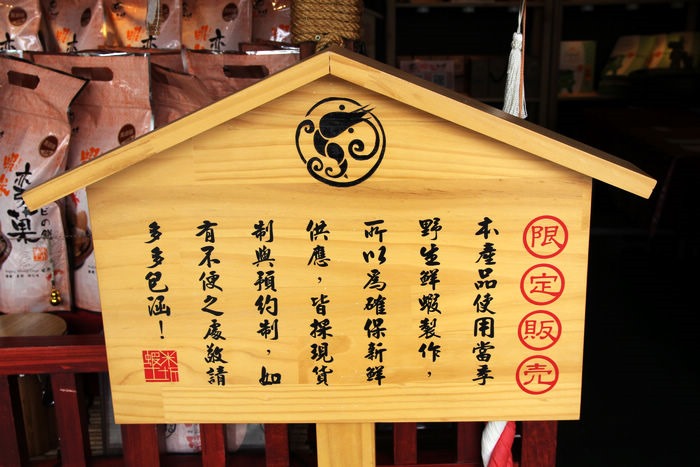 限定販売
本產品使用當季
野生鮮蝦製作，
所以為確保新鮮
供應，皆採現貨
制與預約制，如
有不便之處敬請
多多包涵！